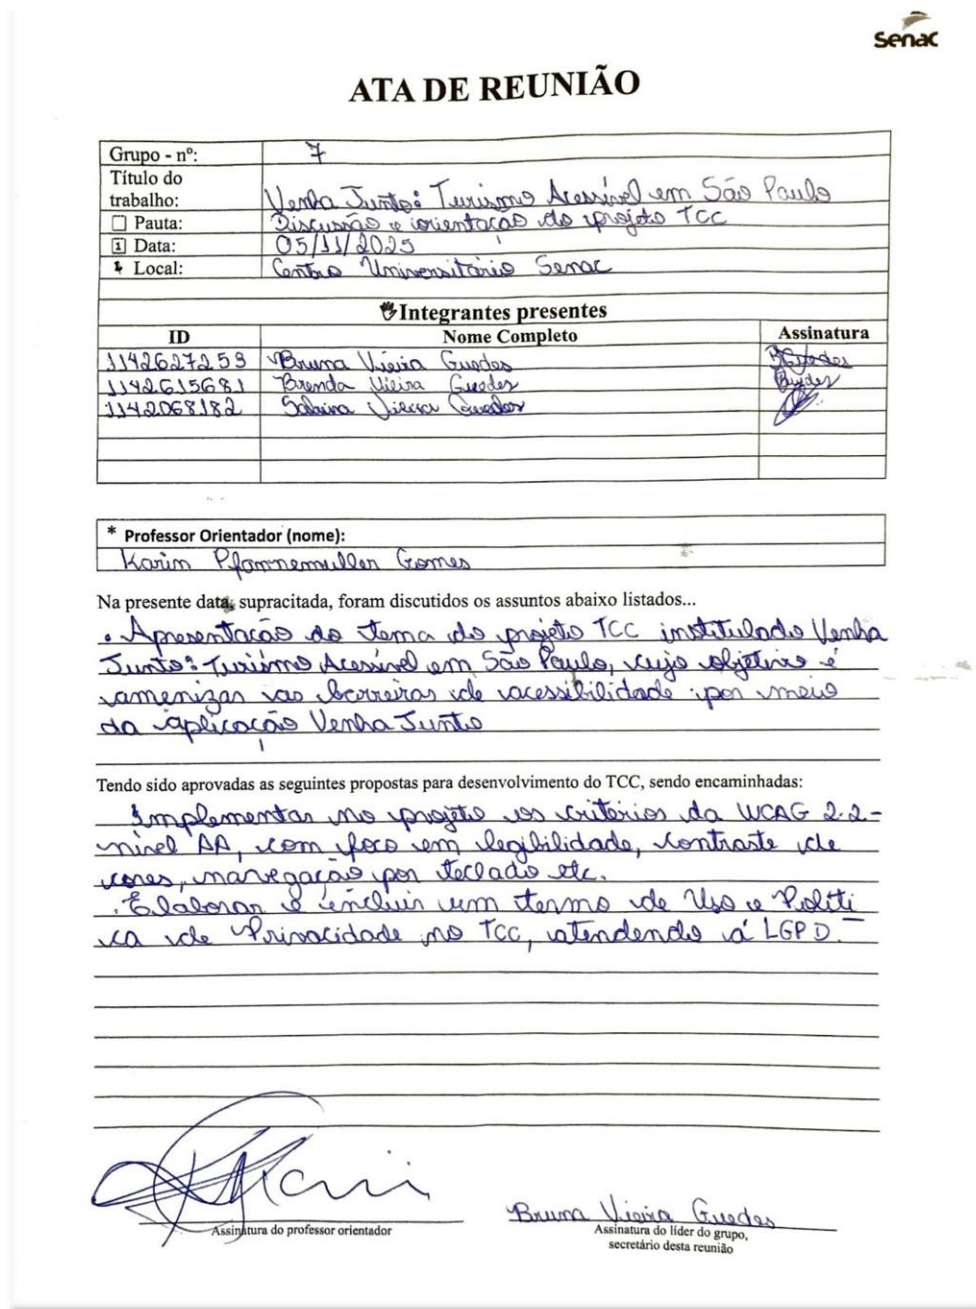 Senac
ATA DE REUNIÃO
Grupo - nº: 7
Título do
trabalho: Venha Junto: Turismo Acessível em São Paulo
Pauta: Discussão e orientação do projeto TCC
Data: 05/11/2025
Local: Centro Universitário Senac
Integrantes presentes
ID Nome Completo Assinatura
1142627253 Bruna Vieira Guedes BGuedes
1142615681 Brenda Vieira Guedes Guedes
1142068182 Vieira Guedes
* Professor Orientador (nome):
Karin Pfannemuller Gomes
Na presente data, supracitada, foram discutidos os assuntos abaixo listados...
. Apresentação do tema do projeto TCC institulado Venha
Junto: Turismo Acessível em São Paulo, cujo objetivo é
amenizar as barreiras de acessibilidade por meio
da aplicação Venha Junto
Tendo sido aprovadas as seguintes propostas para desenvolvimento do TCC, sendo encaminhadas:
Implementar no projeto os critérios da WCAG 2.2-
nível AA, com foco em legibilidade, contraste de
cores, navegação por teclado etc.
. Elaborar e incluir um termo de Uso e Politi
ca de Privacidade no TCC, atendendo á LGPD.
Assinatura do professor orientador
Bruna Vieira Guedes
Assinatura do líder do grupo,
secretário desta reunião